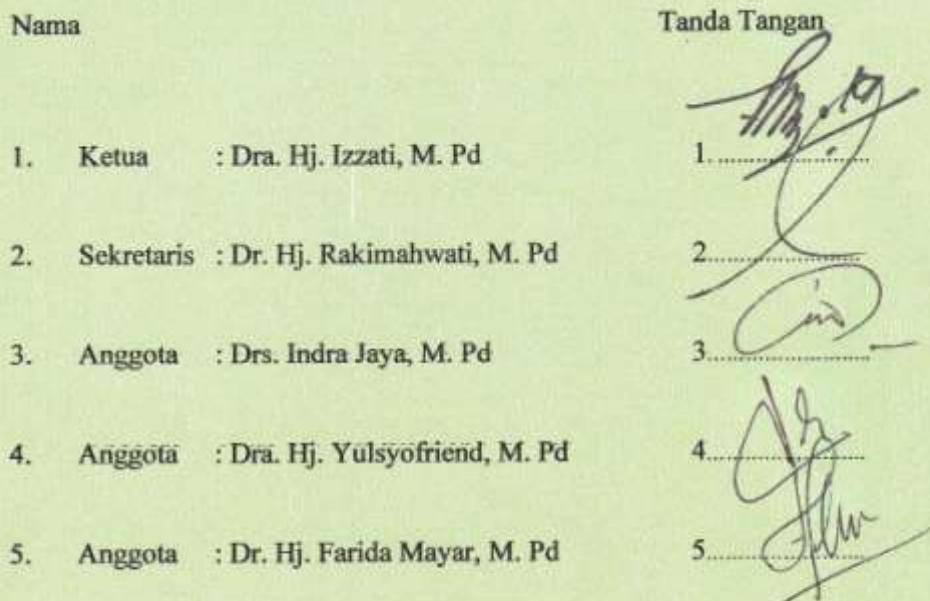 Nama Tanda Tangan
1. Ketua : Dra. Hj. Izzati, M. Pd 1. ....................
2. Sekretaris : Dr. Hj. Rakimahwati, M. Pd 2....................
3. Anggota : Drs. Indra Jaya, M. Pd 3....................
4. Anggota : Dra. Hj. Yulsyofriend, M. Pd 4....................
5. Anggota : Dr. Hj. Farida Mayar, M. Pd 5....................